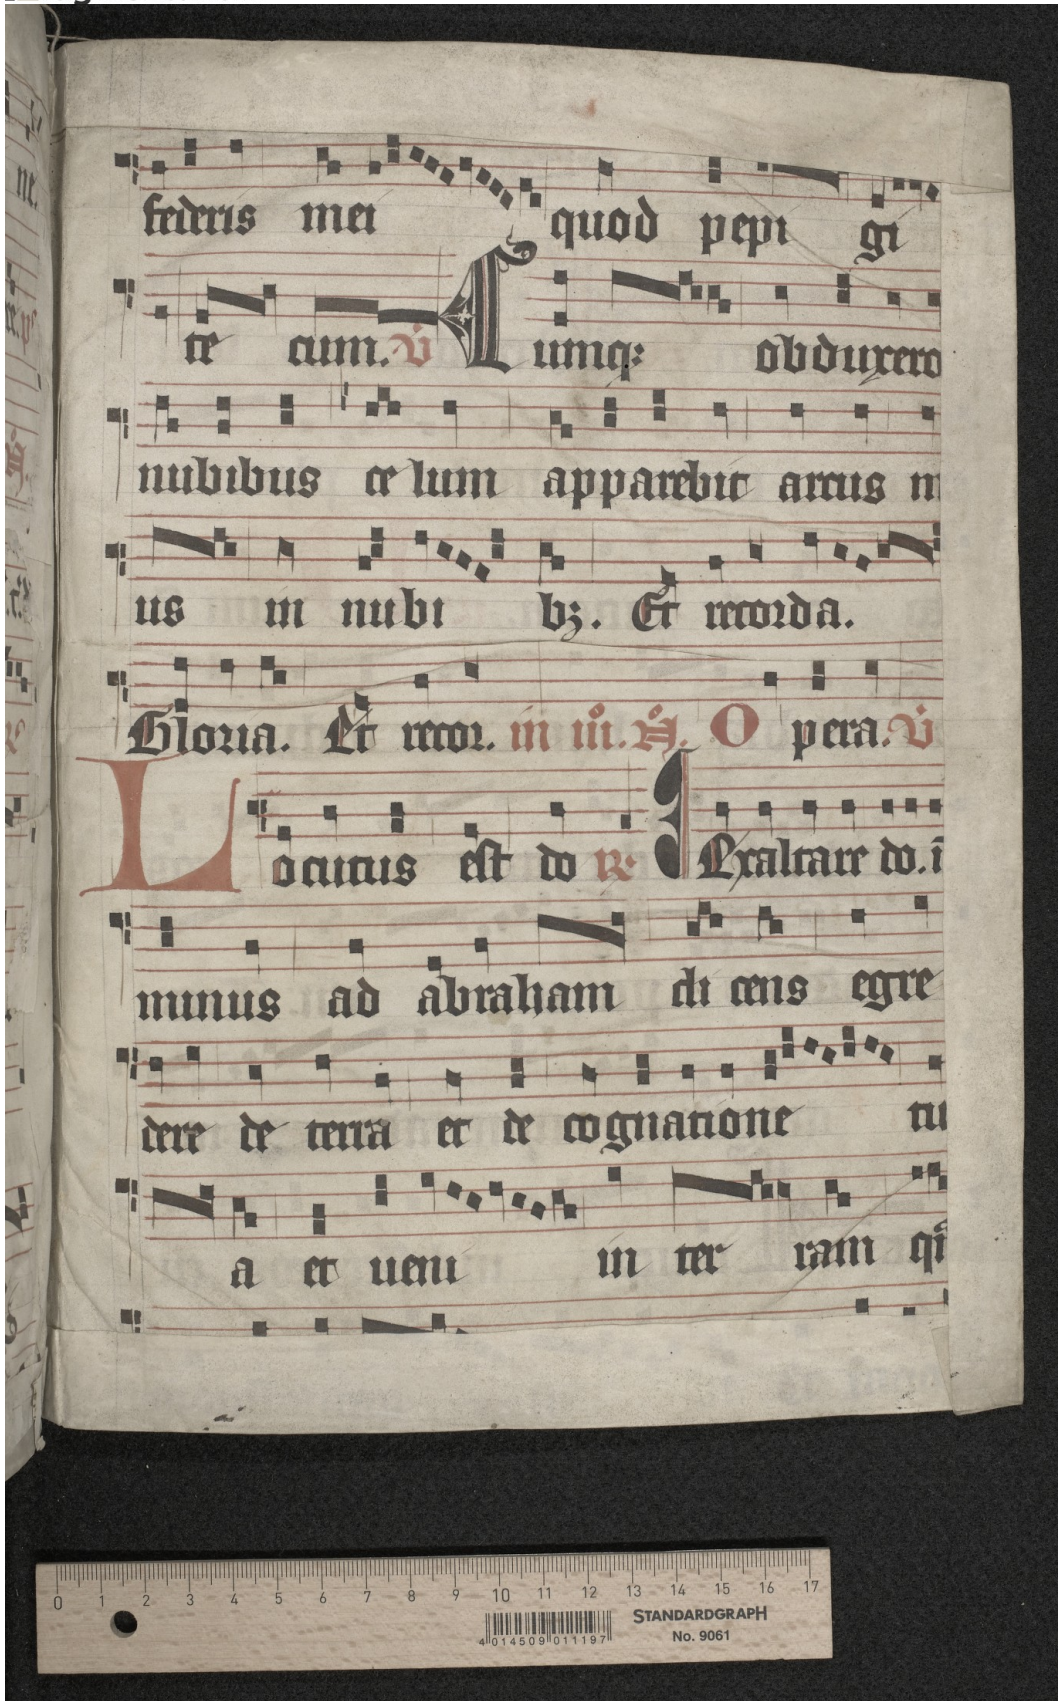 federis mei quod pepi gi
te cum. V̇ Cumq; obduxero
nubibus ce lum apparebit arcus m
us in nubi bꝫ. Et recorda.
Gloria. Et recor. in iii. A. O pera. V̇
Locutus est do ℟. Exaltare do. i
minus ad abraham di cens egre
dere de terra et de cognatione tu
a et ueni in ter ram
0 1 2 3 4 5 6 7 8 9 10 11 12 13 14 15 16 17
STANDARDGRAPH
4 014509 011197
No. 9061